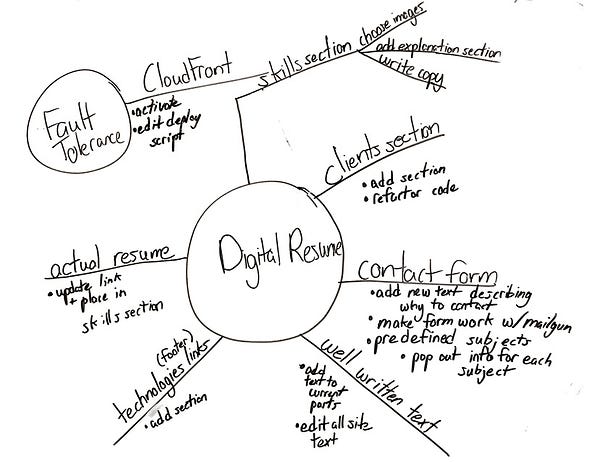 choose images
skills section
add explanation section
write copy
CloudFront
• activate
• edit deploy
script
Fault
Tolerance
Clients section
• add section
• refactor code
Digital Resume
actual resume
• update link
+ place in
skills section
contact form
• add new text describing
why to contact
• make form work w/mailgun
• predefined subjects
• pop out info for each
subject
(footer)
technologies links
• add section
well written text
• add
text to
current
parts
• edit all site
text